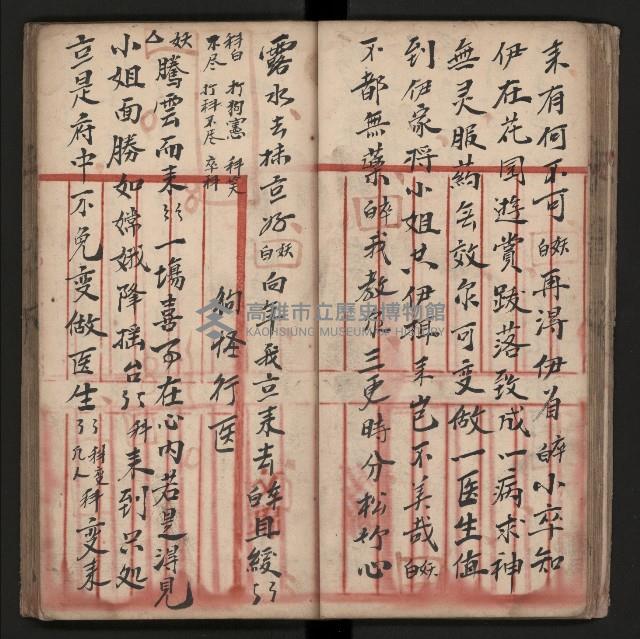 來有何不可 妖白 再得伊首 卒白 小卒知
伊在花园遊賞跋落致成一病求神
無灵服葯無效尔可变做一医生值
到伊家将小姐共伊 來豈不美哉 妖白
不都無藥 卒白 我教 三更時分松 心
露水去抹 好 妖白 向年我 來去 卒白 且緩
科白 打狗憲 科笑
不尽 打科不尽 卒科
狗怪行医
妖 騰雲而來 一塲喜 在心內若是得見
小姐面勝如嫦娥降摇台 科 來到只処
是府中不免变做医生 科变 凡人 科 变来
高雄市立歷史博物館
KAOHSIUNG MUSEUM OF HISTORY